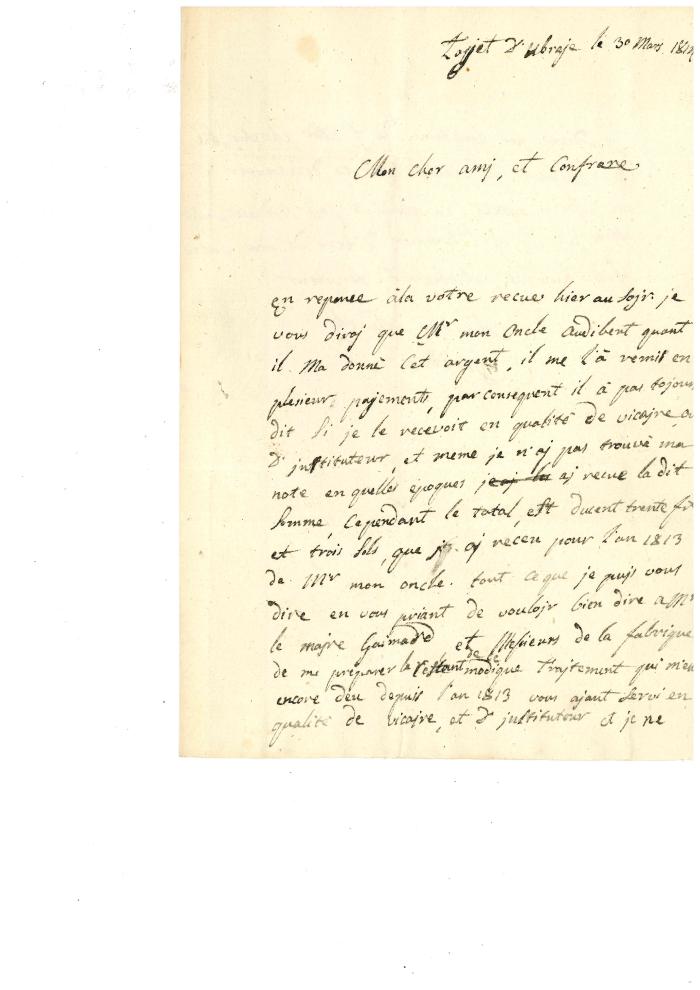 Tojet D'ubraje le 30 Mars 181
Mon cher amj, et Confrare
en reponce àla votre recue hier au sojr. je
vous diraj que Mr mon oncle Audibert quant
il Ma donnè Cèt argent, il me l'à remit en
plesieur pajements, par consequent il à pas tojours
dit Si je le recevoit en qualité de vicajre, ou
D'jnstituteur, et meme je n'aj pas trouvè ma
note en quelles èpoques aj recue la dit
Somme, Cependant le total, est ducent trente
et trois Sols, que aj receu pour l'an 1813
de Mr mon oncle. tout ceque je pujs vous
dire en vous priant de voulojr bien dire a Mr
le majre et Messieurs de la fabrique
de me preparer le restant de ce modique Trajtement qui m'en
encore deu depuis l'an 1813 vous ajant Servi en
qualité de vicajre, et D'jnstituteur et je ne